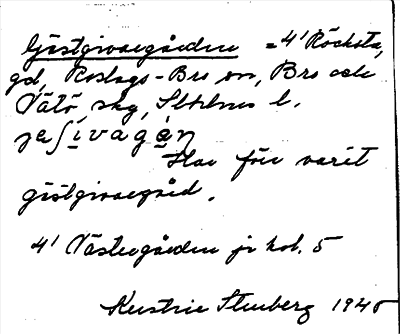 Gästgivaregården = 4¹ Röcksta,
gd, Roslags-Bro sn, Bro och
Vätö skg, Sthlms l.
jæʃìvagáɳ
Har förr varit
gästgivaregård.
4¹ Västergården jr kol. 5
Kerstin Stenberg 1945